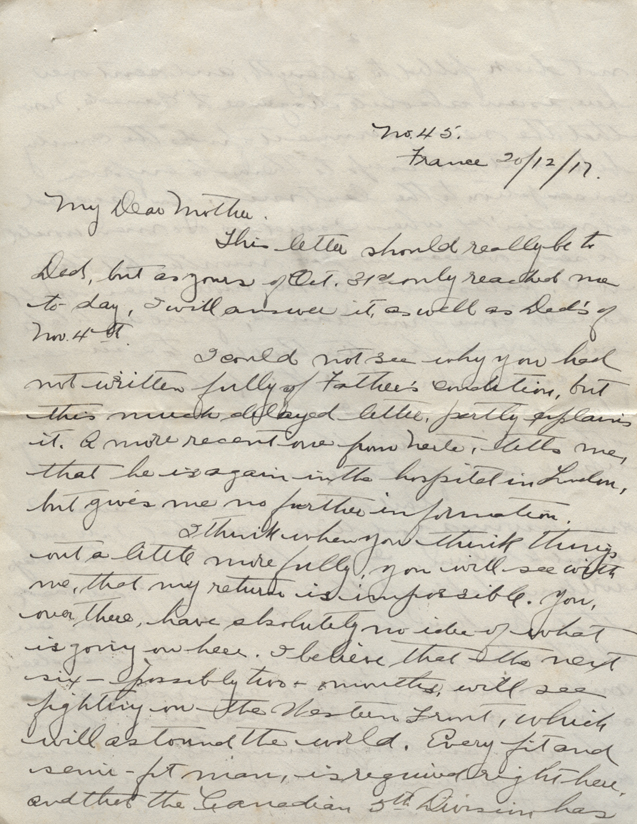 No. 45.
France 20/12/17.
My Dear Mother.
This letter should really be to
Dad, but as yours of Oct. 31st only reached me
to-day, I will answer it, as well as Dad's of
Nov. 4th.
I could not see why you had
not written fully of Father's condition, but
this much delayed letter, partly explains
it. A more recent one from, tells me,
that he is again in the hospital in London,
but gives me no further information.
I think when you think things
out a little more fully, you will see with
me, that my return is impossible. You,
over there, have absolutely no idea of what
is going on here. I believe that the next
six - possibly two months, will see
fighting on the Western Front, which
will astound the world. Every fit and
semi-fit man, is required right here,
and that the Canadian 5th Division has